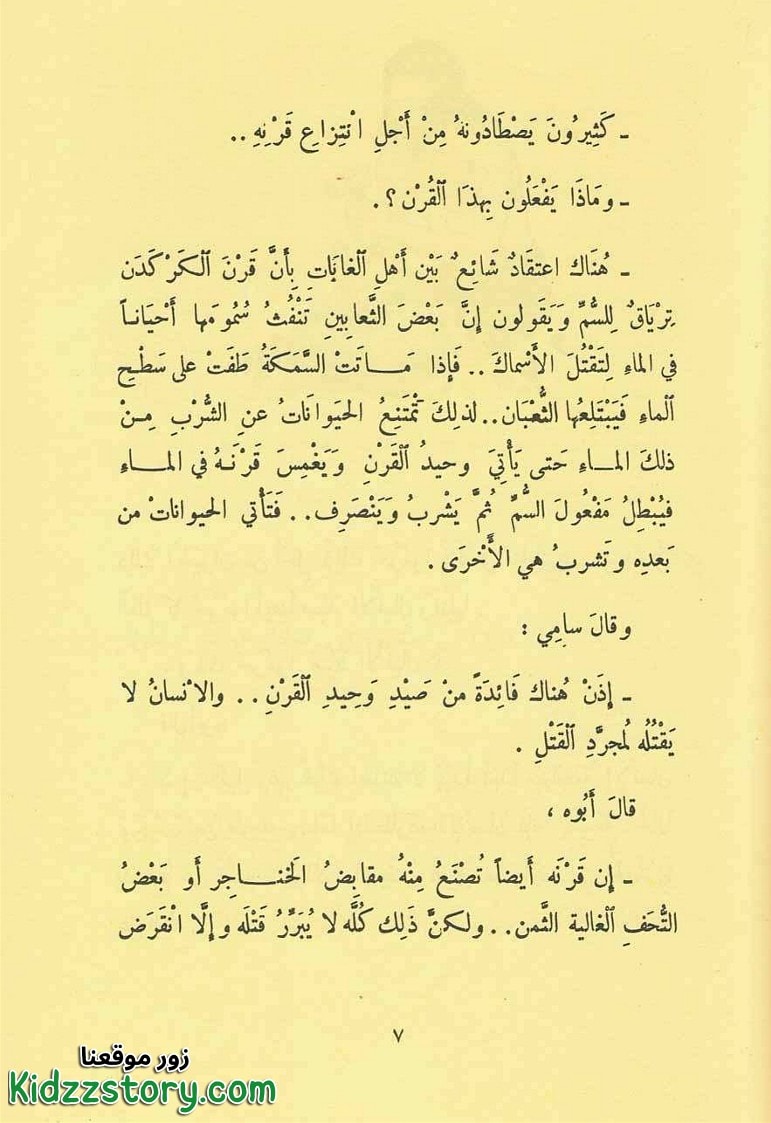 ـ كَثِيرُونَ يَصْطَادُونهُ مِنْ أَجْلِ انْتِزَاعِ قَرْنِهِ ..
ـ ومَاذَا يَفْعَلُون بِهذَا ٱلْقُرْن ؟ .
ـ هُنَاك اعتقَادٌ شَائِعٌ بَيْن أَهْلِ ٱلغابَاتِ بِأَنَّ قَرْنَ ٱلكَرْكَدَن
تِرْيَاقٌ لِلسُّمِّ وَيَقُولون إنَّ بَعْضَ الثَّعابِينِ تَنْفُثُ سُمُومَها أَحْيَاناً
في الماءِ لِتَقْتُلَ الأَسْماكَ .. فَإذا مَاتَتْ السَّمَكَةُ طَفَتْ على سَطْحِ
ٱلماءِ فَيَبْتَلِعُها الثُّعْبَان .. لذلِكَ تَمْتَنِعُ الحَيوَانَاتُ عنِ الشُّرْبِ مِنْ
ذلكَ الماءِ حَتى يَأْتِيَ وحيدُ ٱلقَرْنِ وَيَغْمِسَ قَرْنَهُ في الماءِ
فيُبْطِلُ مَفْعُولَ السُّمِّ ثُمَّ يَشْربُ وَيَنْصَرِف .. فَتَأْتي الحيوانَاتْ من
بَعدِه وتَشربُ هي الأُخْرَى .
وقالَ سامِي :
ـ إذَنْ هُناك فَائِدَةً منْ صَيْدِ وَحِيدِ ٱلقَرْنِ .. والانْسانُ لا
يَقْتُلُه لمُجرَّدِ ٱلقَتْلِ .
قالَ أَبُوه ،
ـ إن قَرْنَه أيضاً تُصْنَعُ مِنْهُ مقابِضُ الخَناجِر أو بَعْضُ
التُّحَفِ ٱلغالية الثَّمن .. ولكنَّ ذَلِك كُلَّه لا يُبَرِّرُ قَتْلَه وإلَّا انْقَرَض
٧
زور موقعنا
Kidzzstory.com